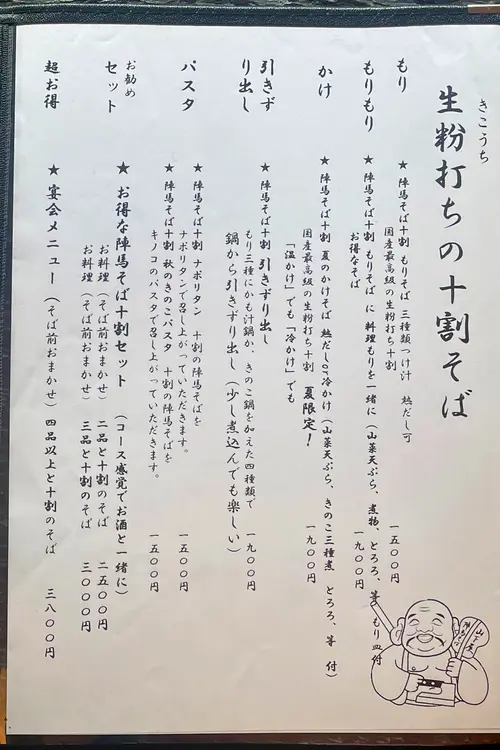 きこうち
生粉打ちの十割そば
もり
★ 陣馬そば十割 もりそば 三種類つけ汁 熱だし可
国産最高級の生粉打ち十割 一五〇〇円
もりもり
★ 陣馬そば十割 もりそば に 料理もりを一緒に (山菜天ぷら、煮物、とろろ、等 もり皿付
お得なそば 一九〇〇円
かけ
★ 陣馬そば十割 夏のかけそば 熱だしor冷かけ (山菜天ぷら、きのこ三種煮 とろろ、等 付)
国産最高級の生粉打ち十割 夏限定!
「温かけ」でも「冷かけ」でも 一九〇〇円
引きず
り出し
★ 陣馬そば十割 引きずり出し
もり三種にかも汁鍋か、きのこ鍋を加えた四種類で 一九〇〇円
鍋から引きずり出し (少し煮込んでも楽しい)
パスタ
★ 陣馬そば十割 ナポリタン 十割の陣馬そばを
ナポリタンで召し上がっていただきます。 一五〇〇円
★ 陣馬そば十割 秋のきのこパスタ 十割の陣馬そばを
キノコのパスタで召し上がっていただきます。 一五〇〇円
お勧め
セット
★ お得な陣馬そば十割セット (コース感覚でお酒と一緒に)
お料理 (そば前おまかせ) 二品と十割のそば 二五〇〇円
お料理 (そば前おまかせ) 三品と十割のそば 三〇〇〇円
超お得
★ 宴会メニュー (そば前おまかせ) 四品以上と十割のそば 三八〇〇円